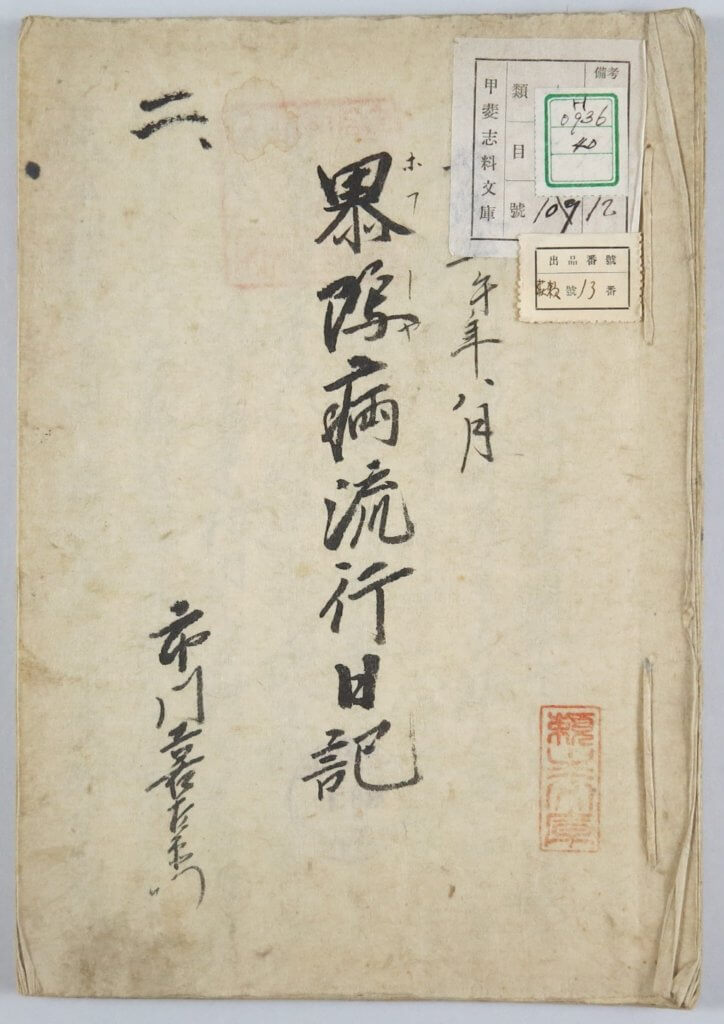 備考
類
目
號 109 12
甲斐志料文庫
0936
40
出品番號
號13番
午年八月
ホフシヤ
暴瀉病流行日記
二、
市川喜左衛門